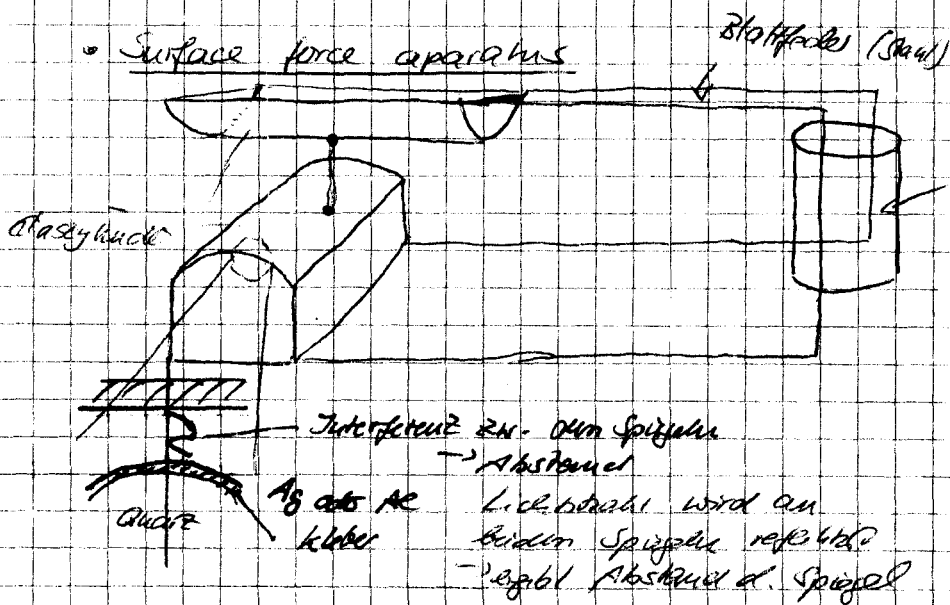 • Surface force aparatus
Blattfeder (Stahl)
Glaszylinder
Interferenz zw. den Spiegeln
→ Abstand
Ag oder Al
Kleber
Quarz
Lichtstrahl wird an
beiden Spiegeln reflektiert
→ ergibt Abstand d. Spiegel